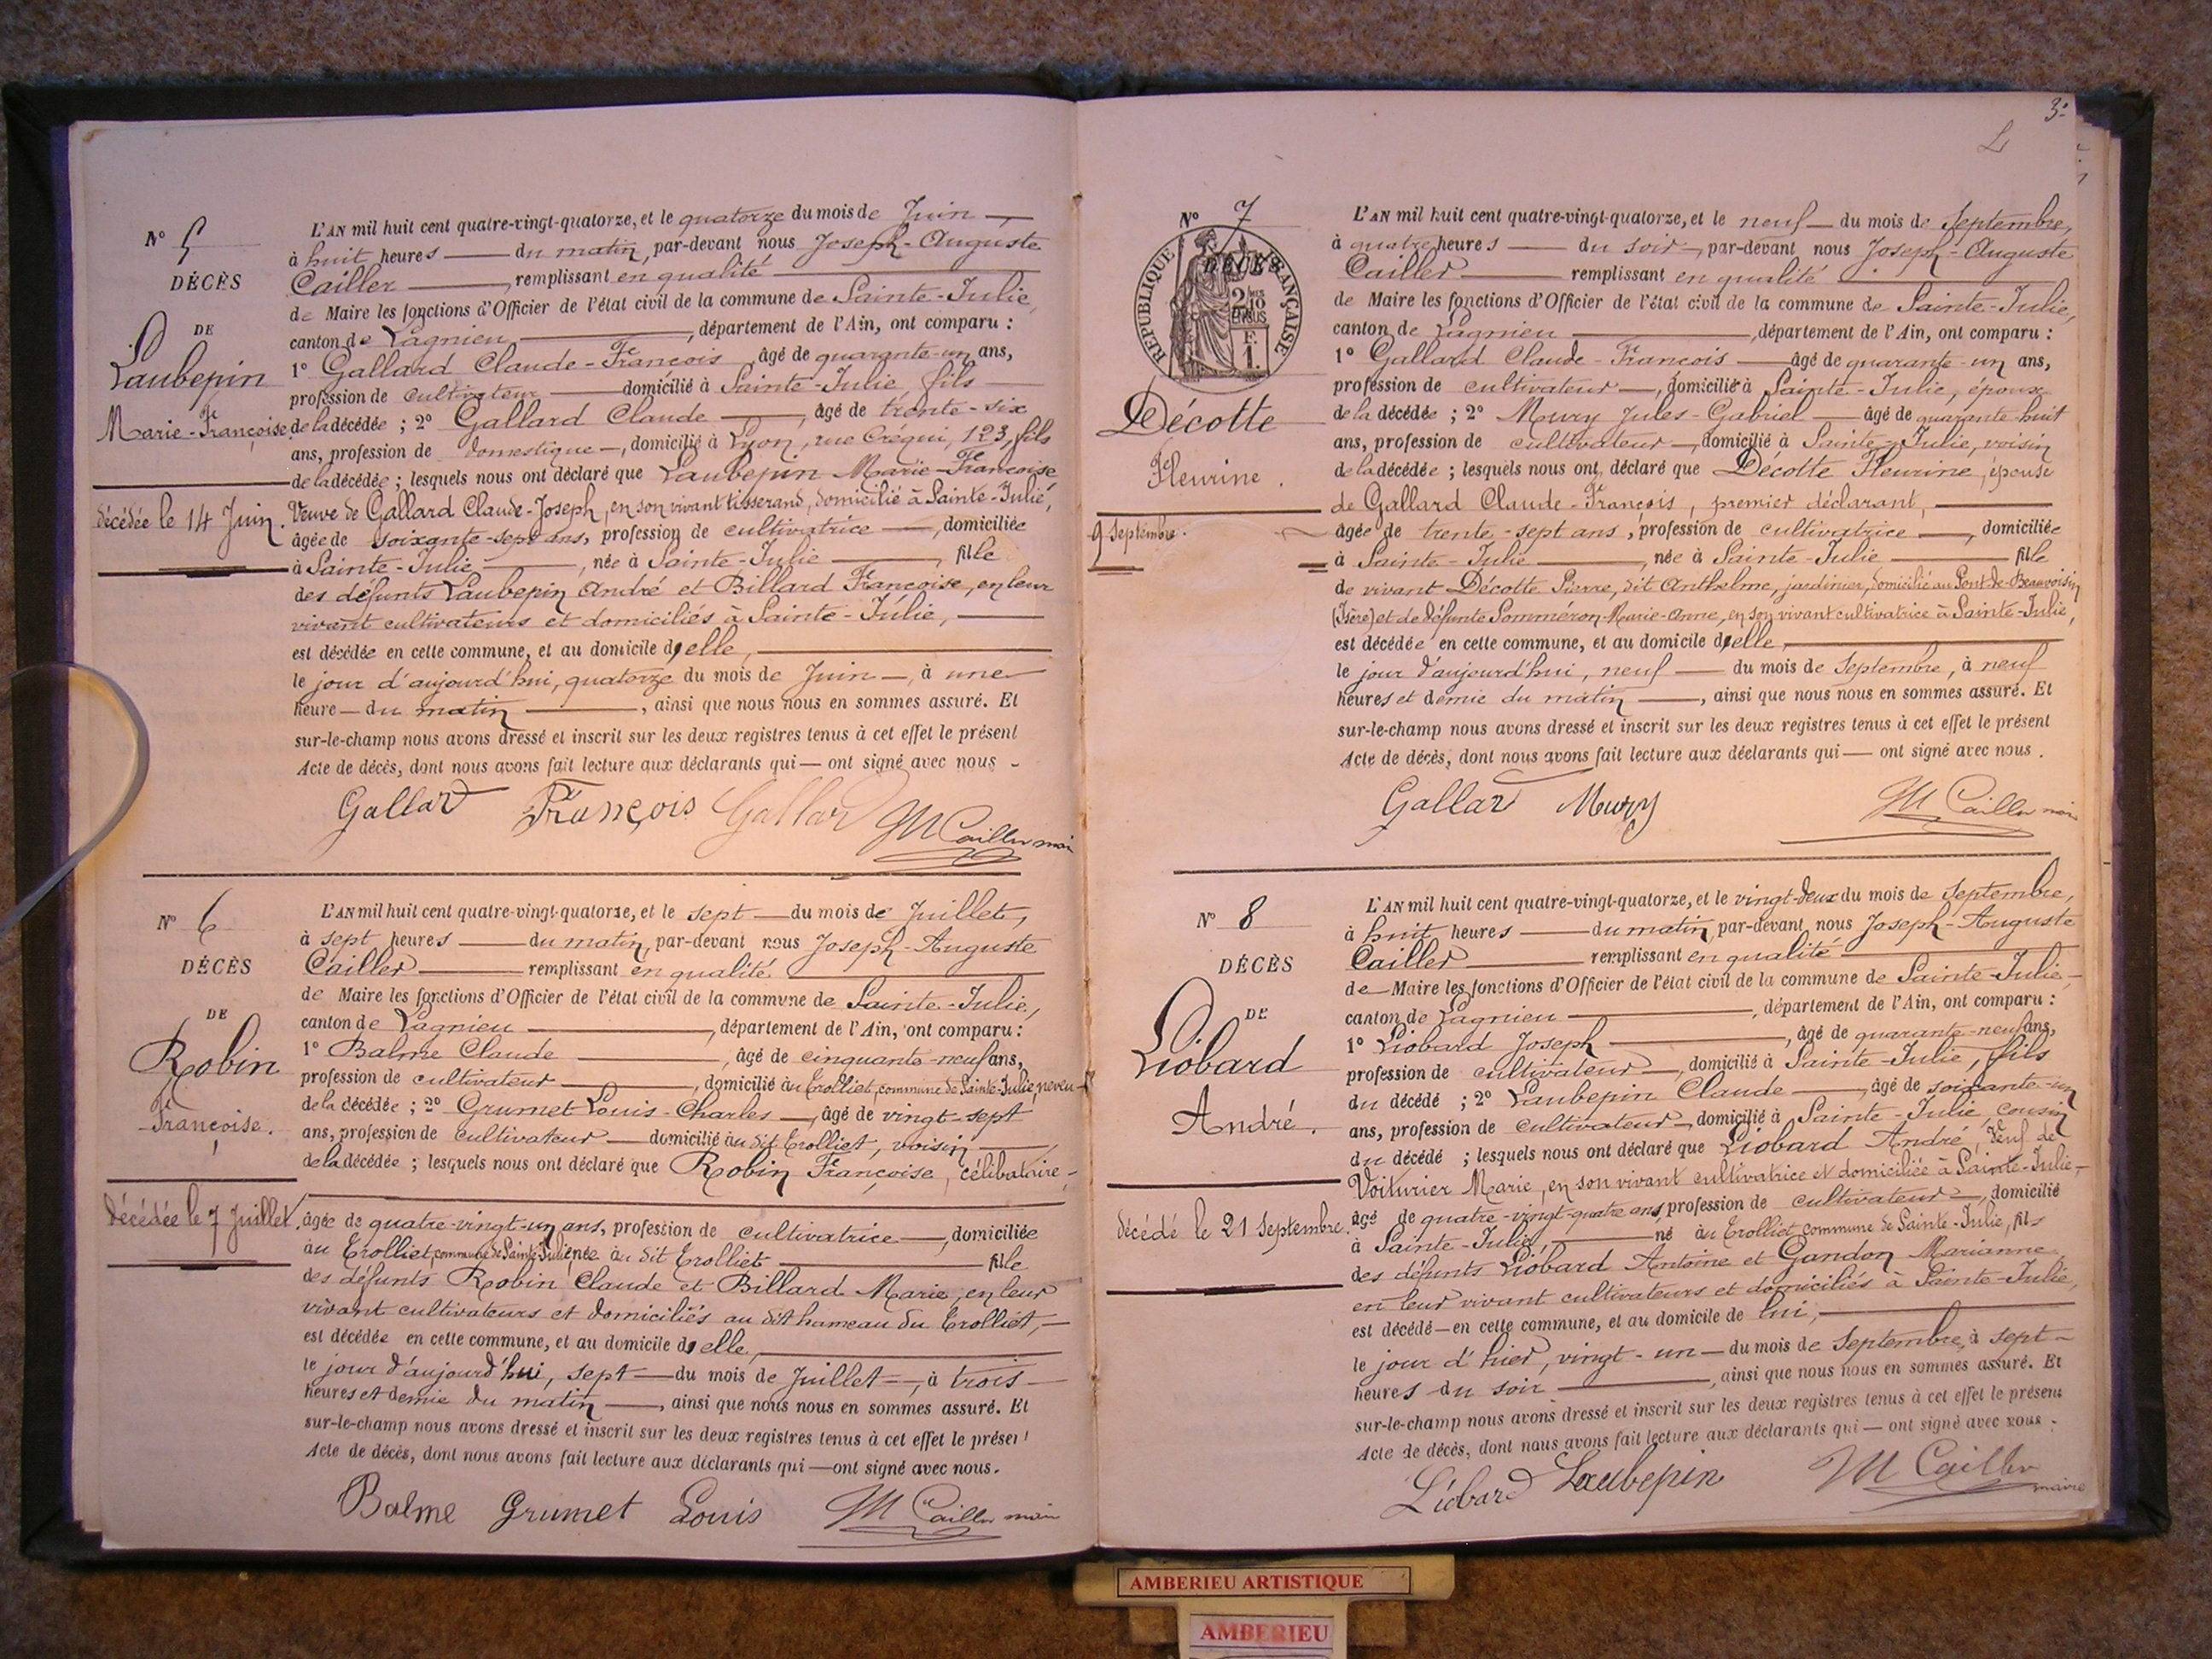 N° 5
DÉCÈS
DE
Laubepin
Marie-Françoise
décédée le 14 Juin.
L'AN mil huit cent quatre-vingt-quatorze, et le quatorze du mois de Juin
à huit heures du matin, par-devant nous Joseph-Auguste
Cailler, remplissant en qualité
de Maire les fonctions d'Officier de l'état civil de la commune de Sainte-Julie,
canton de Lagnieu, département de l'Ain, ont comparu :
1° Gallard Claude-François, âgé de quarante-un ans,
profession de cultivateur domicilié à Sainte-Julie, fils
de la décédée ; 2° Gallard Claude, âgé de trente-six
ans, profession de domestique, domicilié à Lyon, rue Créqui, 123, fils
de la décédée ; lesquels nous ont déclaré que Laubepin Marie-Françoise,
Veuve de Gallard Claude-Joseph, en son vivant tisserand, domicilié à Sainte-Julie,
âgée de soixante-sept ans, profession de cultivatrice, domiciliée
à Sainte-Julie, née à Sainte-Julie, fille
des défunts Laubepin André et Billard Françoise, en leur
vivant cultivateurs et domiciliés à Sainte-Julie,
est décédée en cette commune, et au domicile d'elle,
le jour d'aujourd'hui, quatorze du mois de Juin, à une
heure du matin, ainsi que nous nous en sommes assuré. Et
sur-le-champ nous avons dressé et inscrit sur les deux registres tenus à cet effet le présent
Acte de décès, dont nous avons fait lecture aux déclarants qui — ont signé avec nous.
Gallard François Gallard M Cailler maire
N° 6
DÉCÈS
DE
Robin
Françoise.
Décédée le 7 Juillet.
L'AN mil huit cent quatre-vingt-quatorze, et le sept du mois de Juillet,
à sept heures du matin, par-devant nous Joseph-Auguste
Cailler remplissant en qualité
de Maire les fonctions d'Officier de l'état civil de la commune de Sainte-Julie,
canton de Lagnieu, département de l'Ain, ont comparu :
1° Balme Claude, âgé de cinquante-neuf ans,
profession de cultivateur, domicilié au Trolliet, commune de Sainte-Julie, neveu
de la décédée ; 2° Grumet Louis-Charles, âgé de vingt-sept
ans, profession de cultivateur domicilié au dit Trolliet, voisin
de la décédée ; lesquels nous ont déclaré que Robin Françoise, célibataire,
âgée de quatre-vingt-un ans, profession de cultivatrice, domiciliée
au Trolliet, commune de Sainte-Julie, née au dit Trolliet fille
des défunts Robin Claude et Billard Marie, en leur
vivant cultivateurs et domiciliés au dit hameau du Trolliet,
est décédée en cette commune, et au domicile d'elle,
le jour d'aujourd'hui, sept du mois de Juillet, à trois
heures et demie du matin, ainsi que nous nous en sommes assuré. Et
sur-le-champ nous avons dressé et inscrit sur les deux registres tenus à cet effet le présent
Acte de décès, dont nous avons fait lecture aux déclarants qui — ont signé avec nous.
Balme Grumet Louis M Cailler maire
3
N° 7
DÉCÈS
RÉPUBLIQUE FRANÇAISE
F. 1.
Décotte
Fleurine.
9 Septembre.
L'AN mil huit cent quatre-vingt-quatorze, et le neuf du mois de Septembre,
à quatre heures du soir, par-devant nous Joseph-Auguste
Cailler remplissant en qualité
de Maire les fonctions d'Officier de l'état civil de la commune de Sainte-Julie,
canton de Lagnieu, département de l'Ain, ont comparu :
1° Gallard Claude-François âgé de quarante-un ans,
profession de cultivateur, domicilié à Sainte-Julie, époux
de la décédée ; 2° Moury Jules-Gabriel âgé de quarante-huit
ans, profession de cultivateur, domicilié à Sainte-Julie, voisin
de la décédée ; lesquels nous ont déclaré que Décotte Fleurine, épouse
de Gallard Claude-François, premier déclarant,
âgée de trente-sept ans, profession de cultivatrice, domiciliée
à Sainte-Julie, née à Sainte-Julie fille
de vivant Décotte Pierre, dit Anthelme, jardinier, domicilié au Pont-de-Beauvoisin
(Isère) et de défunte Somméron Marie-Anne, en son vivant cultivatrice à Sainte-Julie,
est décédée en cette commune, et au domicile d'elle,
le jour d'aujourd'hui, neuf du mois de Septembre, à neuf
heures et demie du matin, ainsi que nous nous en sommes assuré. Et
sur-le-champ nous avons dressé et inscrit sur les deux registres tenus à cet effet le présent
Acte de décès, dont nous avons fait lecture aux déclarants qui — ont signé avec nous.
Gallard Moury M Cailler maire
N° 8
DÉCÈS
DE
Liobard
André.
Décédé le 21 Septembre.
L'AN mil huit cent quatre-vingt-quatorze, et le vingt-deux du mois de Septembre,
à huit heures du matin, par-devant nous Joseph-Auguste
Cailler remplissant en qualité
de Maire les fonctions d'Officier de l'état civil de la commune de Sainte-Julie
canton de Lagnieu, département de l'Ain, ont comparu :
1° Liobard Joseph, âgé de quarante-neuf ans,
profession de cultivateur, domicilié à Sainte-Julie, fils
du décédé ; 2° Laubepin Claude, âgé de soixante-un
ans, profession de cultivateur, domicilié à Sainte-Julie, cousin
du décédé ; lesquels nous ont déclaré que Liobard André, veuf de
Voiturier Marie, en son vivant cultivatrice et domiciliée à Sainte-Julie,
âgé de quatre-vingt-quatre ans, profession de cultivateur, domicilié
à Sainte-Julie, né au Trolliet, commune de Sainte-Julie, fils
des défunts Liobard Antoine et Gandon Marianne,
en leur vivant cultivateurs et domiciliés à Sainte-Julie,
est décédé — en cette commune, et au domicile de lui,
le jour d'hier, vingt-un du mois de Septembre, à sept
heures du soir, ainsi que nous nous en sommes assuré. Et
sur-le-champ nous avons dressé et inscrit sur les deux registres tenus à cet effet le présent
Acte de décès, dont nous avons fait lecture aux déclarants qui — ont signé avec nous.
Liobard Laubepin M Cailler maire
AMBERIEU ARTISTIQUE
AMBERIEU